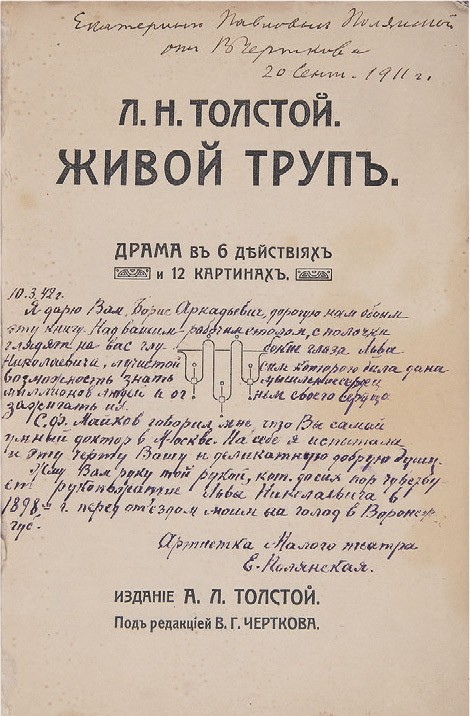 Екатерине Павловне Полянской
от В Черткова
20 Сент. 1911 г.
Л. Н. ТОЛСТОЙ.
ЖИВОЙ ТРУПЪ.
ДРАМА въ 6 ДѢЙСТВІЯХЪ
и 12 КАРТИНАХЪ.
10.3.42 г.
Я дарю Вам, Борис Аркадьевич, дорогую нам обоим
эту книгу. Над вашим рабочим столом, с полочки
глядят на Вас глубокие глаза Льва
Николаевича, лучистой сим которого была дана
возможность знать мышление
миллионов людей и огнем своего сердца
зажигать их.
С.ф. Майков говорил мне, что Вы самый
умный доктор в Москве. На себе я испытала
и эту черту Вашу и деликатную добрую душу.
Жму Вам руку той рукой, кот. до сих пор чувству
ет рукопожатие Льва Николаевича в
1898 г. перед от'ездом моим на голод в Воронеж
губ.
Артистка Малого театра
Е. Полянская.
ИЗДАНІЕ А. Л. ТОЛСТОЙ.
Подъ редакціей В. Г. ЧЕРТКОВА.